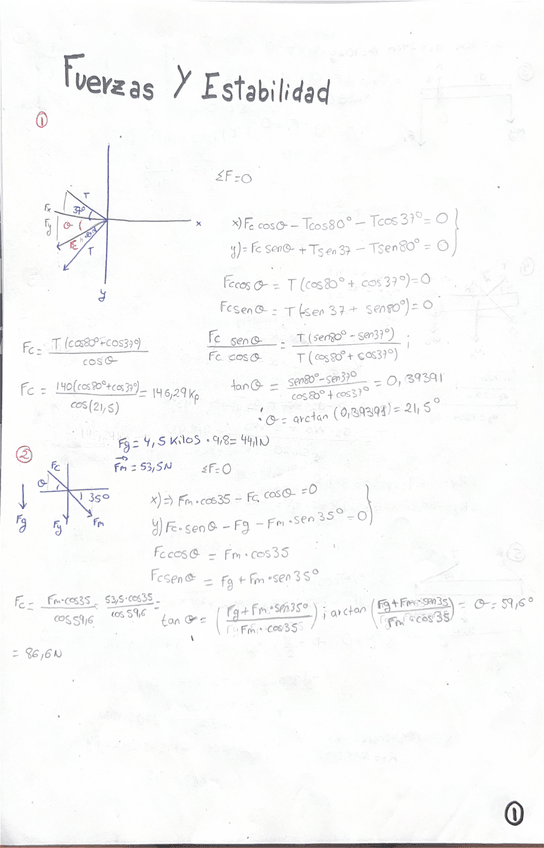 Fuerzas Y Estabilidad
①
ΣF=0
T
Fx
37°
x
Fy
θ
Fc
T
y
x) Fc cosθ - Tcos80° - Tcos37° = 0
y) = Fc senθ + Tsen37 - Tsen80° = 0
Fc cosθ = T (cos80° + cos37°) = 0
Fc senθ = T (-sen 37 + sen80°) = 0
Fc = T (cos80°+cos37°) / cosθ
Fc senθ / Fc cosθ = T (sen80° - sen37°) / T (cos80° + cos37°) ;
Fc = 140(cos80°+cos37°) / cos(21,5) = 146,29 Kp
tanθ = sen80° - sen37° / cos80° + cos37° = 0,39391
∴ θ = arctan (0,39391) = 21,5°
②
Fg = 4,5 Kilos · 9,8 = 44,1N
Fm = 53,5N
ΣF=0
Fc
θ
35°
Fg
Fy
Fm
x) ⇒ Fm · cos35 - Fc cosθ = 0
y) Fc · senθ - Fg - Fm · sen 35° = 0
Fc cosθ = Fm · cos35
Fc senθ = Fg + Fm · sen 35°
Fc = Fm · cos35 / cos 59,6 = 53,5 · cos35 / cos 59,6 =
tan θ = (Fg + Fm · sen35° / Fm · cos35) ; arctan (Fg + Fm · sen35 / Fm · cos35) = θ = 59,6°
= 86,6 N
①